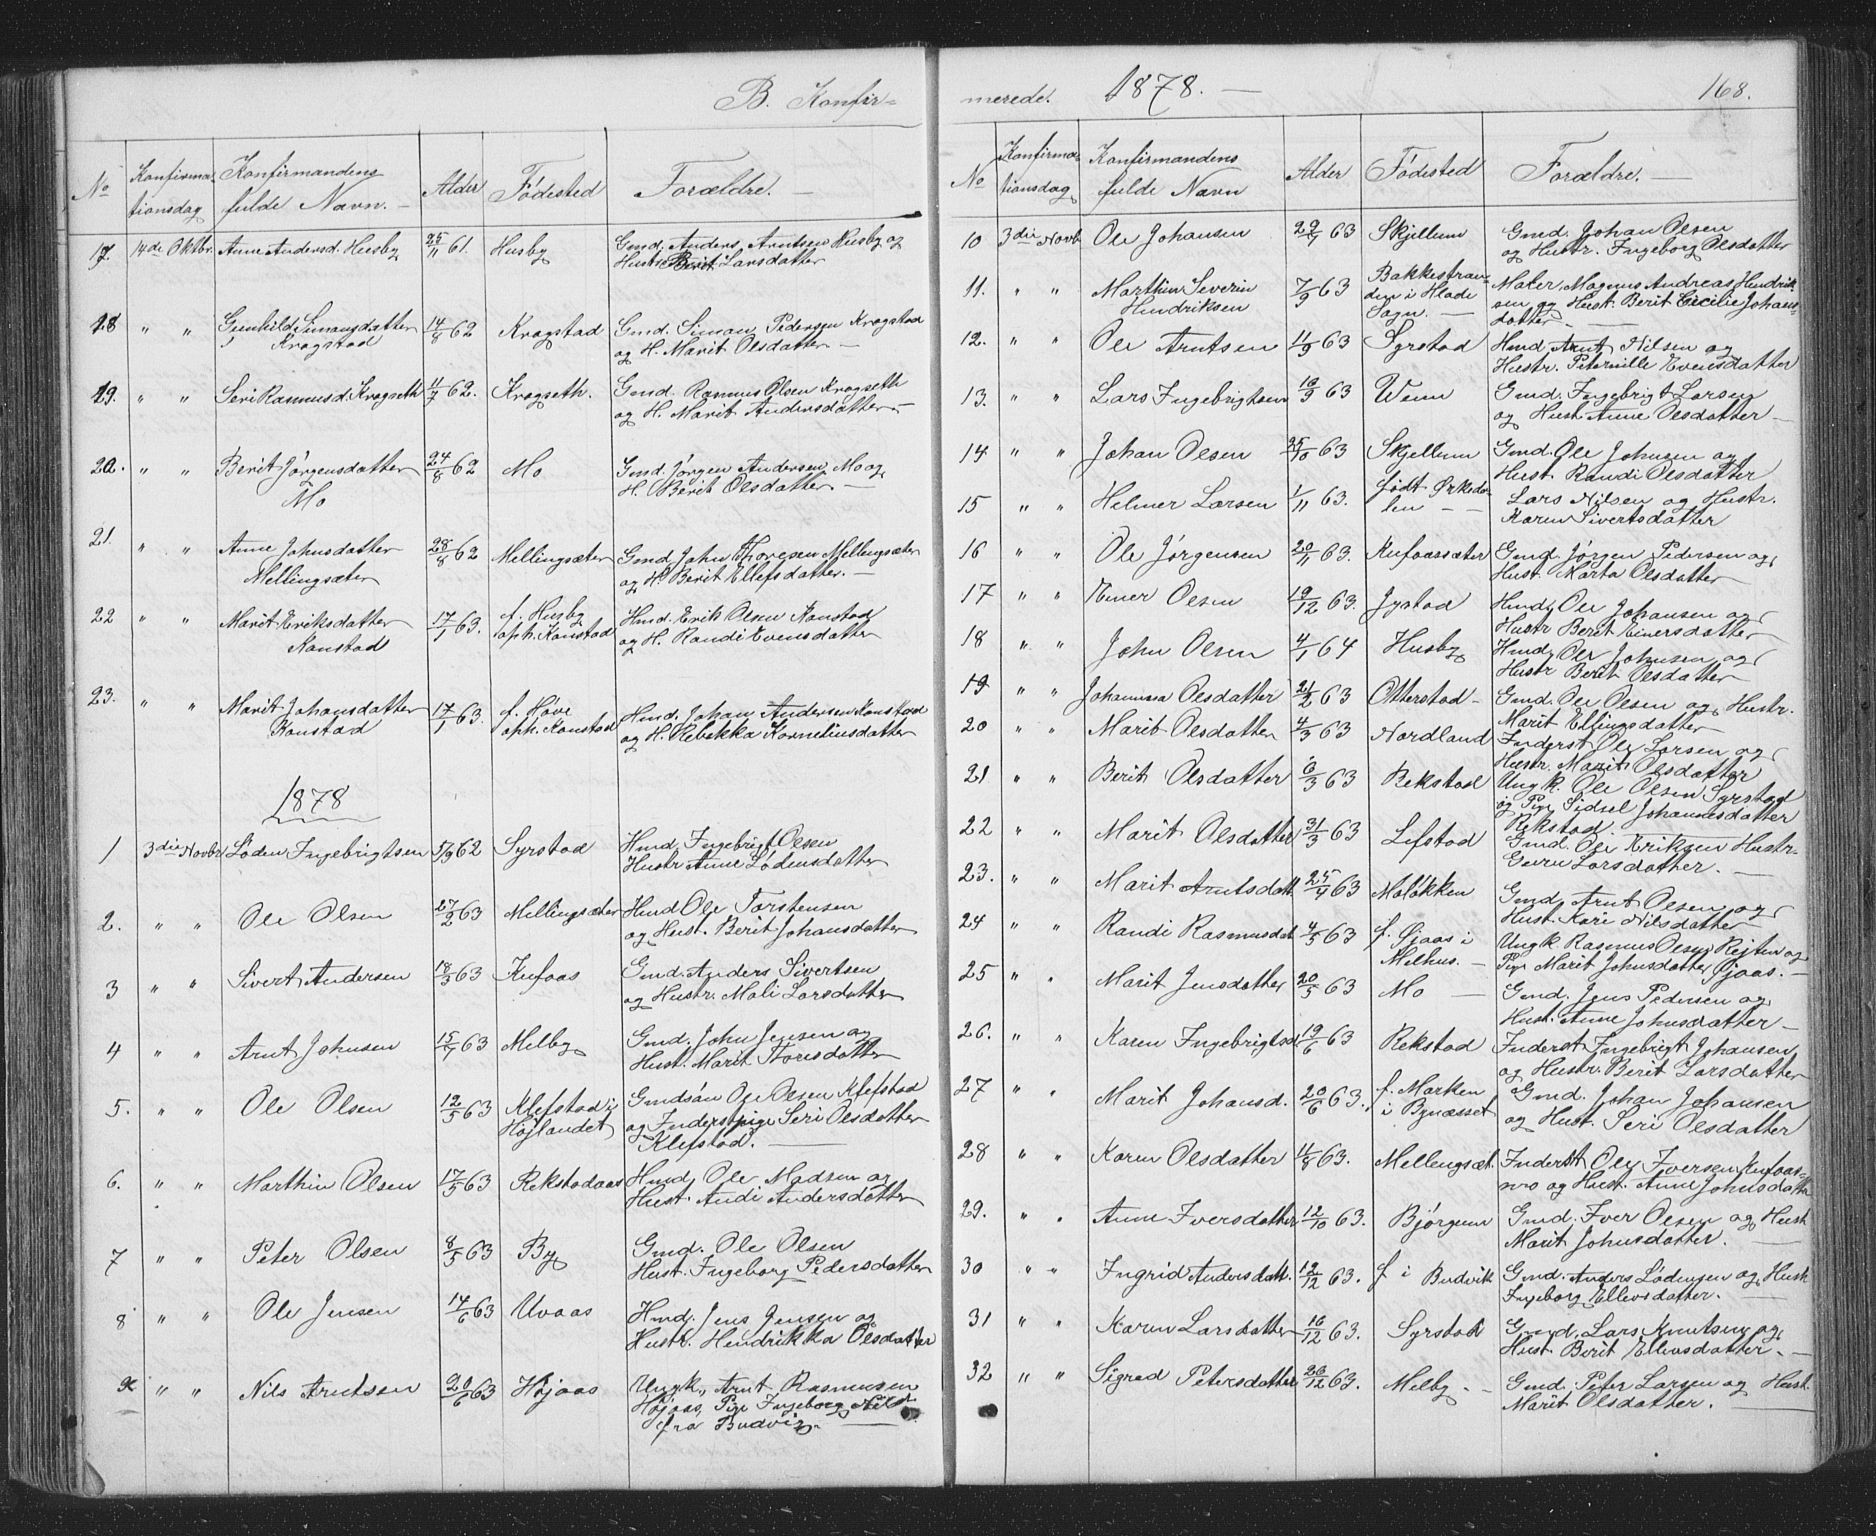 B. Konfir=
No
Konfirma-
tionsdag
Konfirmandens
fulde Navn. -
Alder
Födested
Forældre. -
17 14de Oktbr. Anne Andersd. Husby 25/11 61. Husby Gmd. Anders Arntsen Husby og
Hustr. Berit Larsdatter
18 " " Gunhild Simonsdatter 14/8 62 Kragstad Gmd. Simon Pedersen Kragstad
Kragstad og H. Marit Olsdatter -
19. " " Seri Rasmusd. Kragseth 62. Kragseth. Gmd. Rasmus Olsen Kragseth
og H. Marit Andersdatter -
20. " " Berit Jörgensdatter 24/8 62 Mo Gmd. Jörgen Andersen Mo og
Mo H. Berit Olsdatter -
21. " " Anne Johnsdatter 28/8 62 Mellingsæter Gmd. John Thoresen Mellingsæter
Mellingsæter og H. Berit Ellefsdatter. -
22 " " Marit Eriksdatter 17/1 63. f. Husby Hmd. Erik Olsen Konstad
Konstad oph. Konstad og H. Randi Evensdatter
23. " " Marit Johansdatter 17/1 63. f. Höve Hmd. Johan Andersen Konstad
Konstad oph. Konstad og H. Rebekka Korneliusdatter
1878
1 3die Novbr. Löden Ingebrigtsen 5/9 62 Syrstad Hmd. Ingebrigt Olsen
Hustr. Anne Lodensdatter
2. " " Ole Olsen 27/2 63 Mellingsæter Hmd Ole Torstensen
og Hust. Berit Johansdatter
3 " " Sivert Andersen 18/3 63 Kufaas Gmd. Anders Sivertsen
og Hustr. Mali Larsdatter
4 " " Arnt Johnsen 15/4 63 Melby Gmd. John Jensen og
Hust. Marit Toresdatter
5. " " Ole Olsen 12/5 63 Klefstad i Gmdsön Ole Olsen Klefstad
Höjlandet og Inderstpige Seri Olsdatter
Klefstad.
6. " " Marthin Olsen 17/5 63 Rekstadaas Hmd. Ole Madsen og
Hust. Andi Andersdatter
7 " " Peter Olsen 8/5 63 By Gmd. Ole Olsen
Hust. Ingeborg Pedersdatter
8 " " Ole Jensen 14/6 63 Uvaas Hmd. Jens Jensen og
Hustr. Hendrikka Olsdatter
9 " " Nils Arntsen 20/6 63 Höjaas Ungk. Arnt Rasmussen
Höjaas, Pige Ingeborg Nilsd
fra Budvig. -
merede. 1878. - 168.
No
Konfirma-
tionsdag
Konfirmandens
fulde Navn
Alder
Födested
Forældre. -
10 3die Novb. Ole Johansen 63 Skjellum Gmd. Johan Olsen
og Hustr. Ingeborg Olsdatter
11. " " Marthin Severin 7/9 63 Bakkestran- Maler, Magnus Andreas Hendrik
Hendriksen den i Hlade sen og Hust. Berit Cecilie Johans=
Sogn. - datter -
12. " " Ole Arntsen 11/9 63 Syrstad Hmd Arnt Nilsen og
Hustr. Peternille Evensdatter
13. " " Lars Ingebrigtsen 19/9 63 Wenn Gmd. Ingebrigt Larsen
og Hust. Anne Olsdatter -
14 " " Johan Olsen 25/10 63 Skjellum Gmd. Ole Johnsen og
Hust. Randi Olsdatter
15 " " Helmer Larsen 1/11 63. födt Örkeda- Lars Nilsen og Hustr.
len - - Karen Sivertsdatter
16 " " Ole Jörgensen 20/11 63. Kufaassæter Gmd. Jörgen Pedersen og
Hust. Marta Olsdatter
17 " " Einer Olsen 19/12 63. Syrstad Hmd. Ole Johansen og
Hustr Berit Einersdatter
18 " " John Olsen 4/1 64 Husby Hmd. Ole Johnsen og
Hustr Berit Olsdatter
19 " " Johanna Olsdatter 21/2 63 Otterstad - Gmd. Ole Olsen og Hustr.
Marit Ellingsdatter
20 " " Marit Olsdatter 4/3 63 Nordland Inderst Ole Larsen og
Hustr. Marit Olsdatter
21 " " Berit Olsdatter 6/3 63 Rekstad Ungk. Ole Olsen Syrstad
og Pige Sidsel Johannesdatter
Rekstad.
22 " " Marit Olsdatter 31/3 63 Lefstad Gmd. Ole Eriksen Hustr.
Guru Larsdatter. -
23. " " Marit Arntsdatt. 25/4 63 Moløkken Gmd. Arnt Olsen og
Hust. Kari Nilsdatter
24 " " Randi Rasmusdat 4/5 63 f. Gjaas i Ungk. Rasmus Olsen Rejten og
Melhus. - Pige Marit Johnsdatter Gjaas. -
25 " " Marit Jensdatter 20/5 63 Mo - Gmd. Jens Pedersen og
Hust. Anne Johnsdatter -
26. " " Karen Ingebrigtsd 19/6 63 Rekstad Inderst Ingebrigt Johansen
og Hustr. Berit Larsdatter
27 " " Marit Johansd. 20/6 63. f. Marken Gmd. Johan Johansen
i Bynæsset og Hust. Seri Olsdatter
28 " " Karen Olsdatter 11/8 63. Mellingsæt. Inderst Ole Iversen Kufaas-
og Hust. Anne Johnsdatter
29. " " Anne Iversdatter 12/10 63. Bjørgum Gmd. Iver Olsen og Hust
Marit Johnsdatter.
30 " " Ingrid Andersdatt. 12/12 63. f i Budvik Gmd. Anders Lödensen og Hust
Ingeborg Ellevsdatter. -
31 " " Karen Larsdatter 16/12 63. Syrstad Gmd. Lars Knutsen og
Hust Berit Ellevsdatter. -
32 " " Sigrad Petersdatter 26/12 63. Melby - Gmd. Peter Larsen og Hust.
Marit Olsdatter.